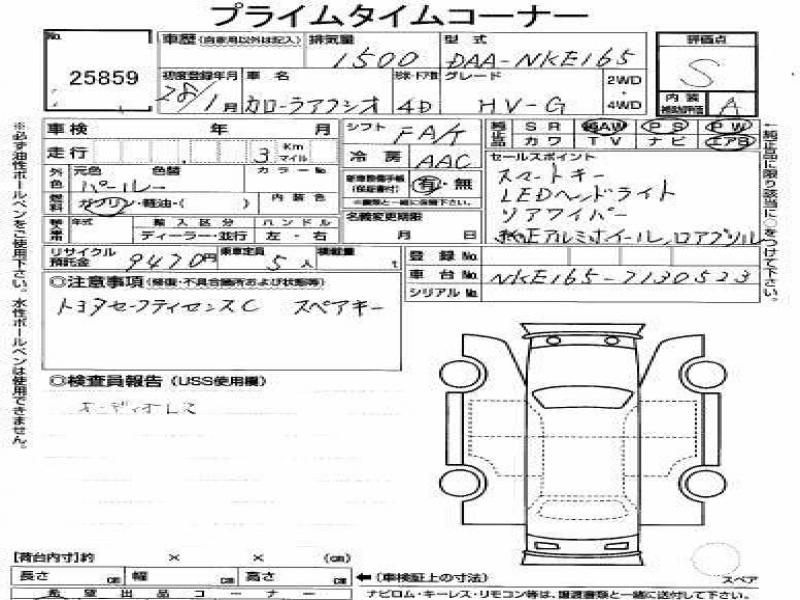 プライムタイムコーナー
No.
25859
車歴(自家用以外は記入)
排気量
1500
型式
DAA-NKE165
評価点
S
初度登録年月
28/1月
車名
カローラアクシオ
形状・ドア数
4D
グレード
HV-G
2WD
・
4WD
内装
補助評価
A
車検 年 月
走行 3 Km
マイル
シフト
FA/T
冷房
AAC
純正品
SR AW PS PW
カワ TV ナビ エアB
外色
元色
パール
色替
カラーNo
燃料
ガソリン・軽油・( )
内装色
新車整備手帳
(保証書付)
有・無
※書類と一緒にお送り下さい。
セールスポイント
スマートキー
LEDヘッドライト
リアワイパー
純正アルミホイール,ロアグリル
輸入車
年式
輸入区分
ディーラー・並行
ハンドル
左・右
名義変更期限
月 日
リサイクル
預託金
9470円
乗車定員
5人
積載量
t
登録No.
車台No.
NKE165-7130523
シリアルNo.
◎注意事項(修復・不具合箇所および状態等)
トヨタセーフティセンスC スペアキー
◎検査員報告(USS使用欄)
オーディオレス
※必ず油性ボールペンをご使用下さい。水性ボールペンは使用できません。
←純正品に限り該当に○をつけて下さい。
【荷台内寸】約 × × (cm)
長さ cm 幅 cm 高さ cm
←(車検証上の寸法)
スペア
希望出品コーナー
ナビロム・キーレス・リモコン等は、譲渡書類と一緒に送付して下さい。